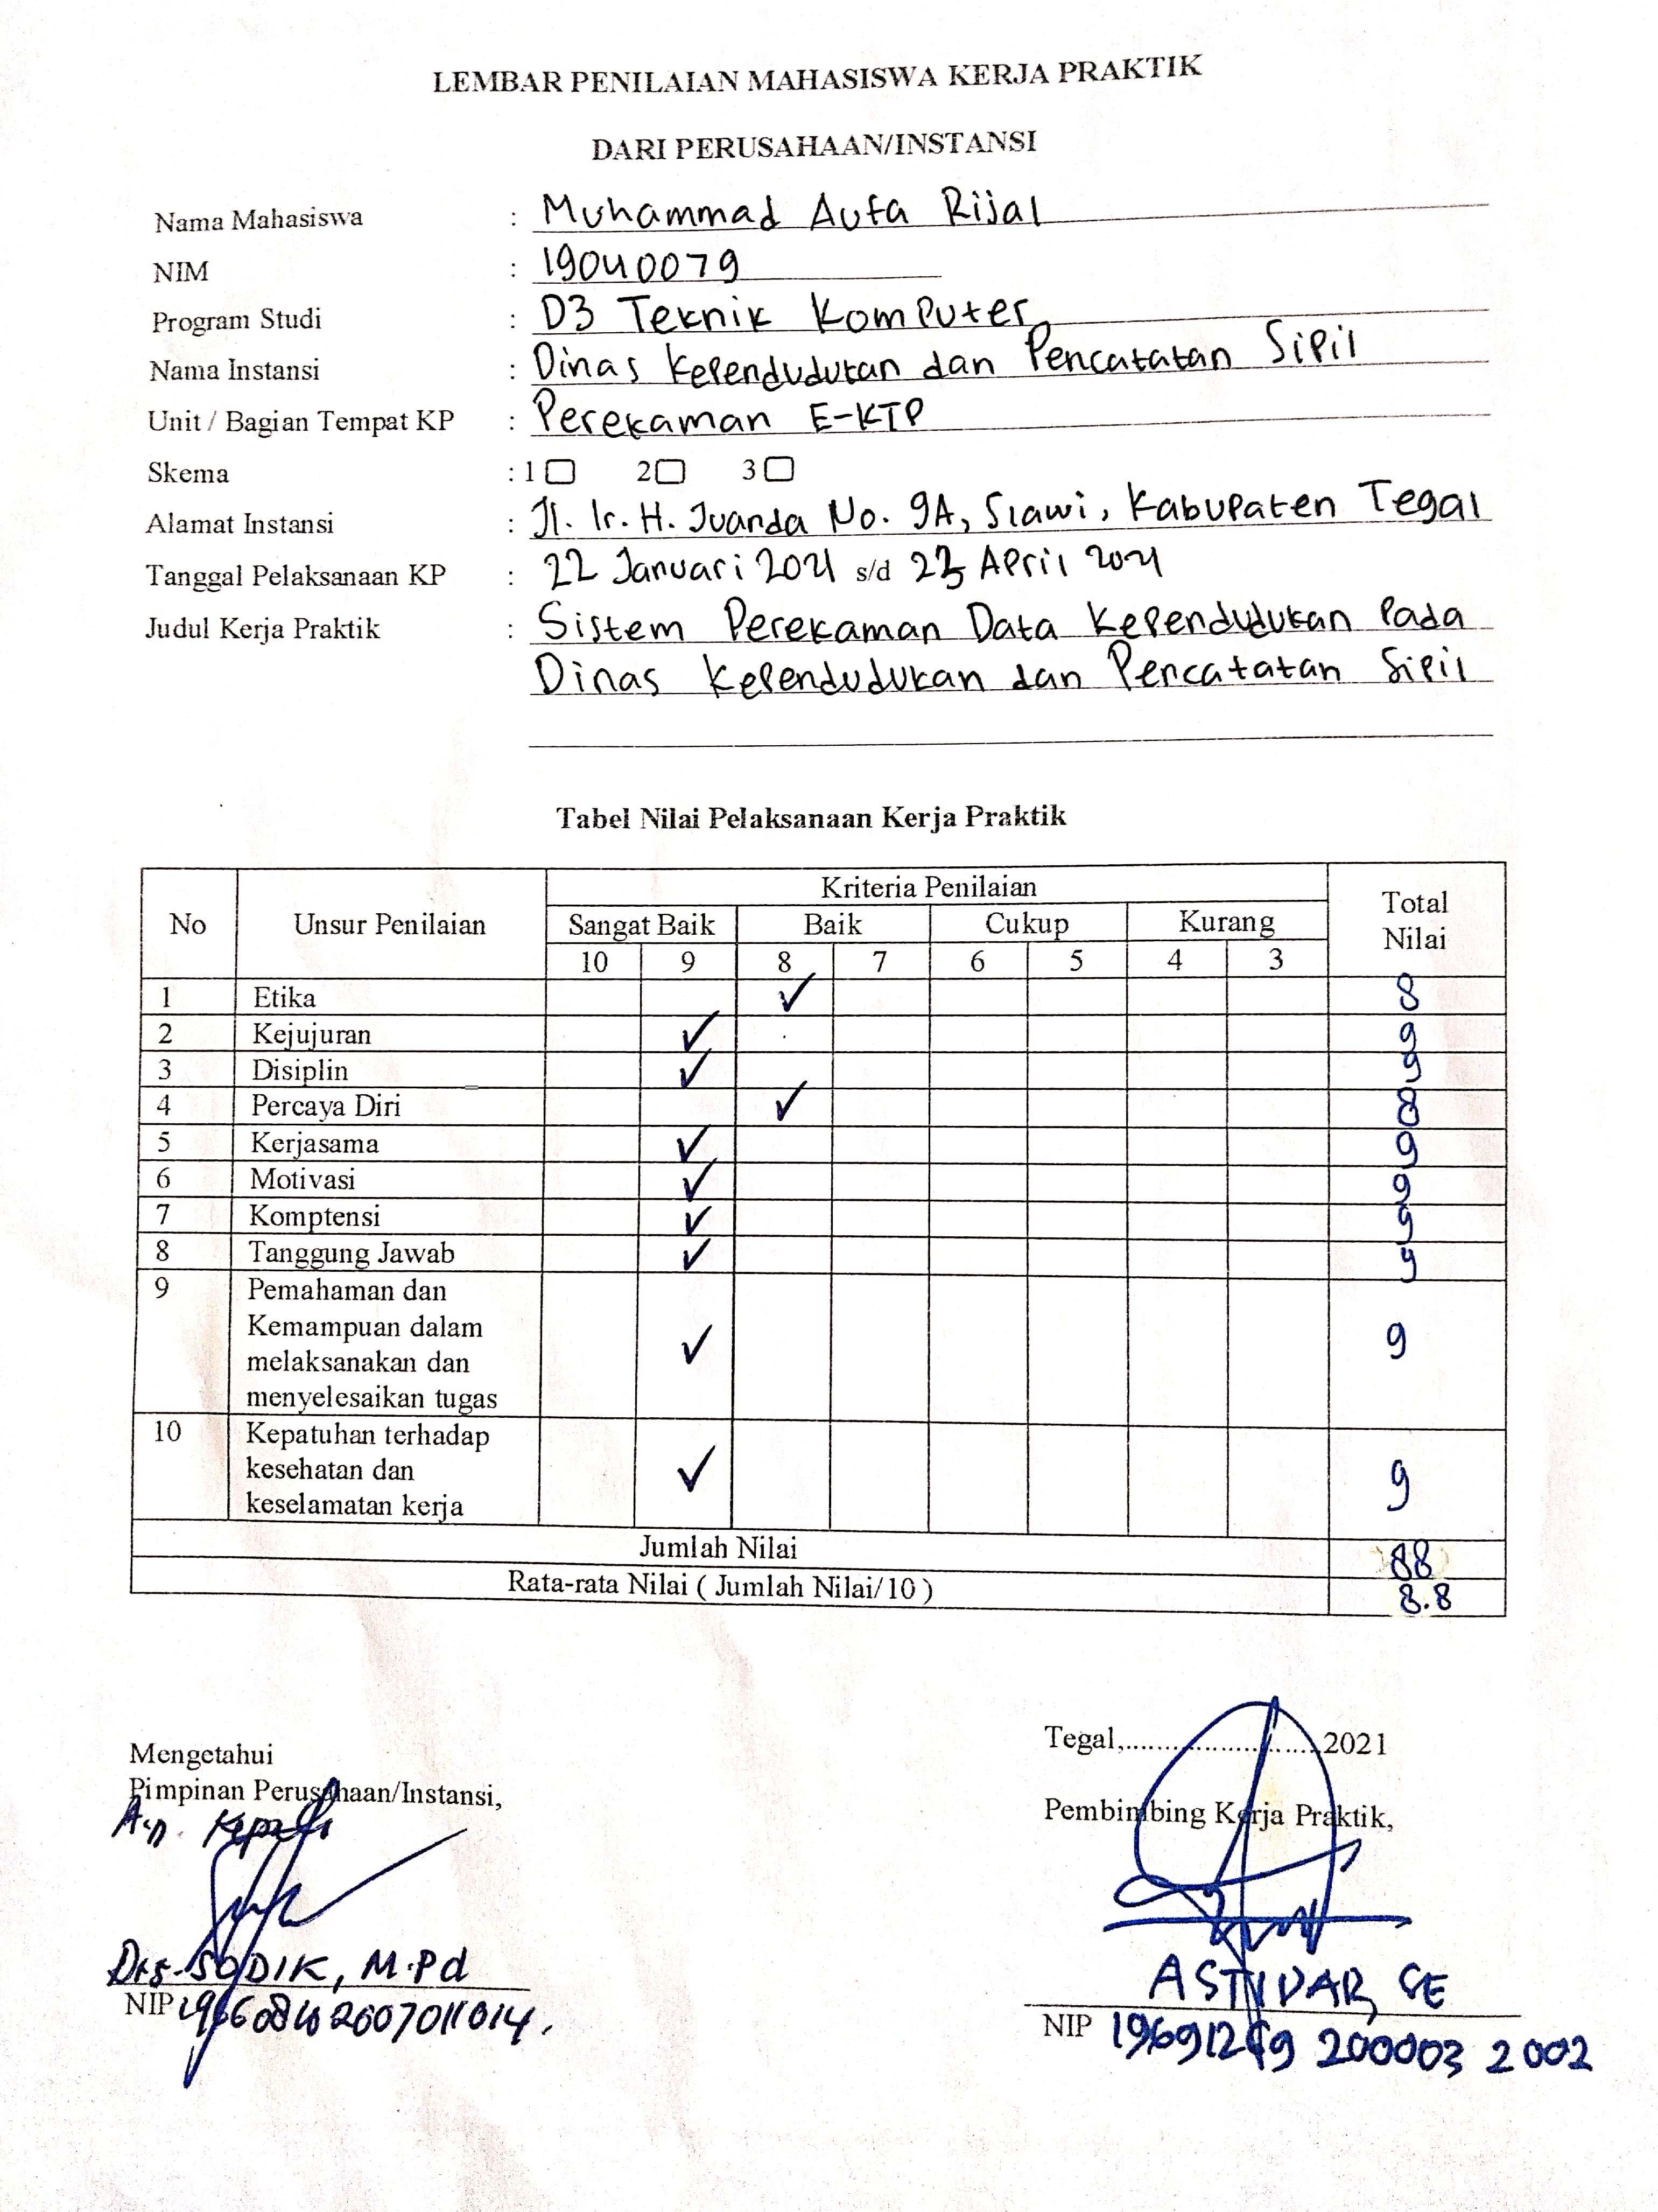 LEMBAR PENILAIAN MAHASISWA KERJA PRAKTIK
DARI PERUSAHAAN/INSTANSI
Nama Mahasiswa : Muhammad Aufa Rijal
NIM : 19040079
Program Studi : D3 Teknik Komputer
Nama Instansi : Dinas Kependudukan dan Pencatatan Sipil
Unit / Bagian Tempat KP : Perekaman E-KTP
Skema : 1 2 3
Alamat Instansi : Jl. Ir. H. Juanda No. 9A, Slawi, Kabupaten Tegal
Tanggal Pelaksanaan KP : 22 Januari 2021 s/d 23 April 2021
Judul Kerja Praktik : Sistem Perekaman Data Kependudukan Pada
Dinas Kependudukan dan Pencatatan Sipil
Tabel Nilai Pelaksanaan Kerja Praktik
No Unsur Penilaian Kriteria Penilaian Total Nilai
Sangat Baik Baik Cukup Kurang
10 9 8 7 6 5 4 3
1 Etika ✓ 8
2 Kejujuran ✓ 9
3 Disiplin ✓ 9
4 Percaya Diri ✓ 8
5 Kerjasama ✓ 9
6 Motivasi ✓ 9
7 Komptensi ✓ 9
8 Tanggung Jawab ✓ 9
9 Pemahaman dan
Kemampuan dalam
melaksanakan dan
menyelesaikan tugas ✓ 9
10 Kepatuhan terhadap
kesehatan dan
keselamatan kerja ✓ 9
Jumlah Nilai 88
Rata-rata Nilai ( Jumlah Nilai/10 ) 8.8
Tegal,........................2021
Mengetahui
Pimpinan Perusahaan/Instansi,
Pembimbing Kerja Praktik,
A.n. Kepala
Drs. SODIK, M.Pd
NIP
ASTIDAR, SE
NIP